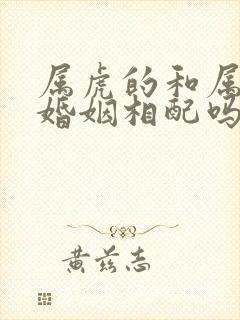 属虎的和属
婚姻相配吗
黄兹志